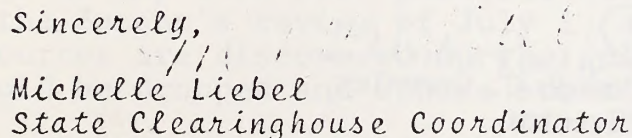 Sincerely,
Michelle Liebel
State Clearinghouse Coordinator